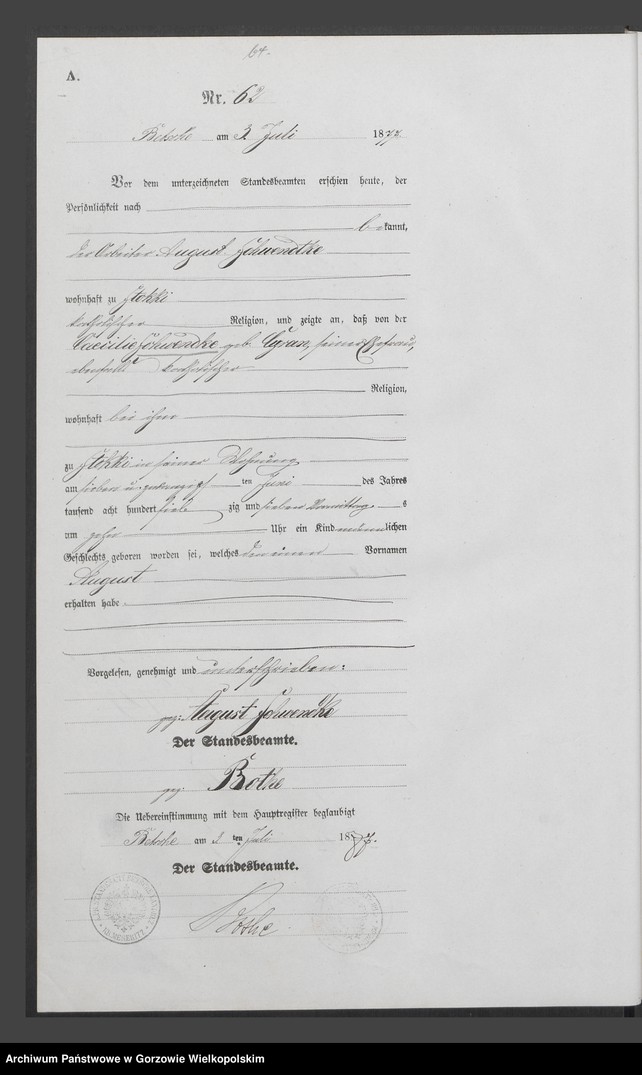 64.
A.
Nr. 62
Betsche am 3. Juli 1877
Vor dem unterzeichneten Standesbeamten erschien heute, der
Persönlichkeit nach
bekannt,
der Arbeiter August Schwendtke
wohnhaft zu Stokki
katholischer Religion, und zeigte an, daß von der
Caecilie Schwendke geb. seiner Ehefrau,
ebenfalls katholischer
Religion,
wohnhaft bei ihm
zu Stokki in seiner Wohnung
am sieben u. zwanzigsten Juni des Jahres
tausend acht hundert siebzig und sieben Vormittags
um zehn Uhr ein Kind männlichen
Geschlechts geboren worden sei, welches den einen Vornamen
August
erhalten habe.
Vorgelesen, genehmigt und unterschrieben:
gez: August Schwendke
Der Standesbeamte.
gez. Bothe
Die Uebereinstimmung mit dem Hauptregister beglaubigt
Betsche am ten Juli 1877.
Der Standesbeamte.
Bothe
KR. MESERITZ
Archiwum Państwowe w Gorzowie Wielkopolskim